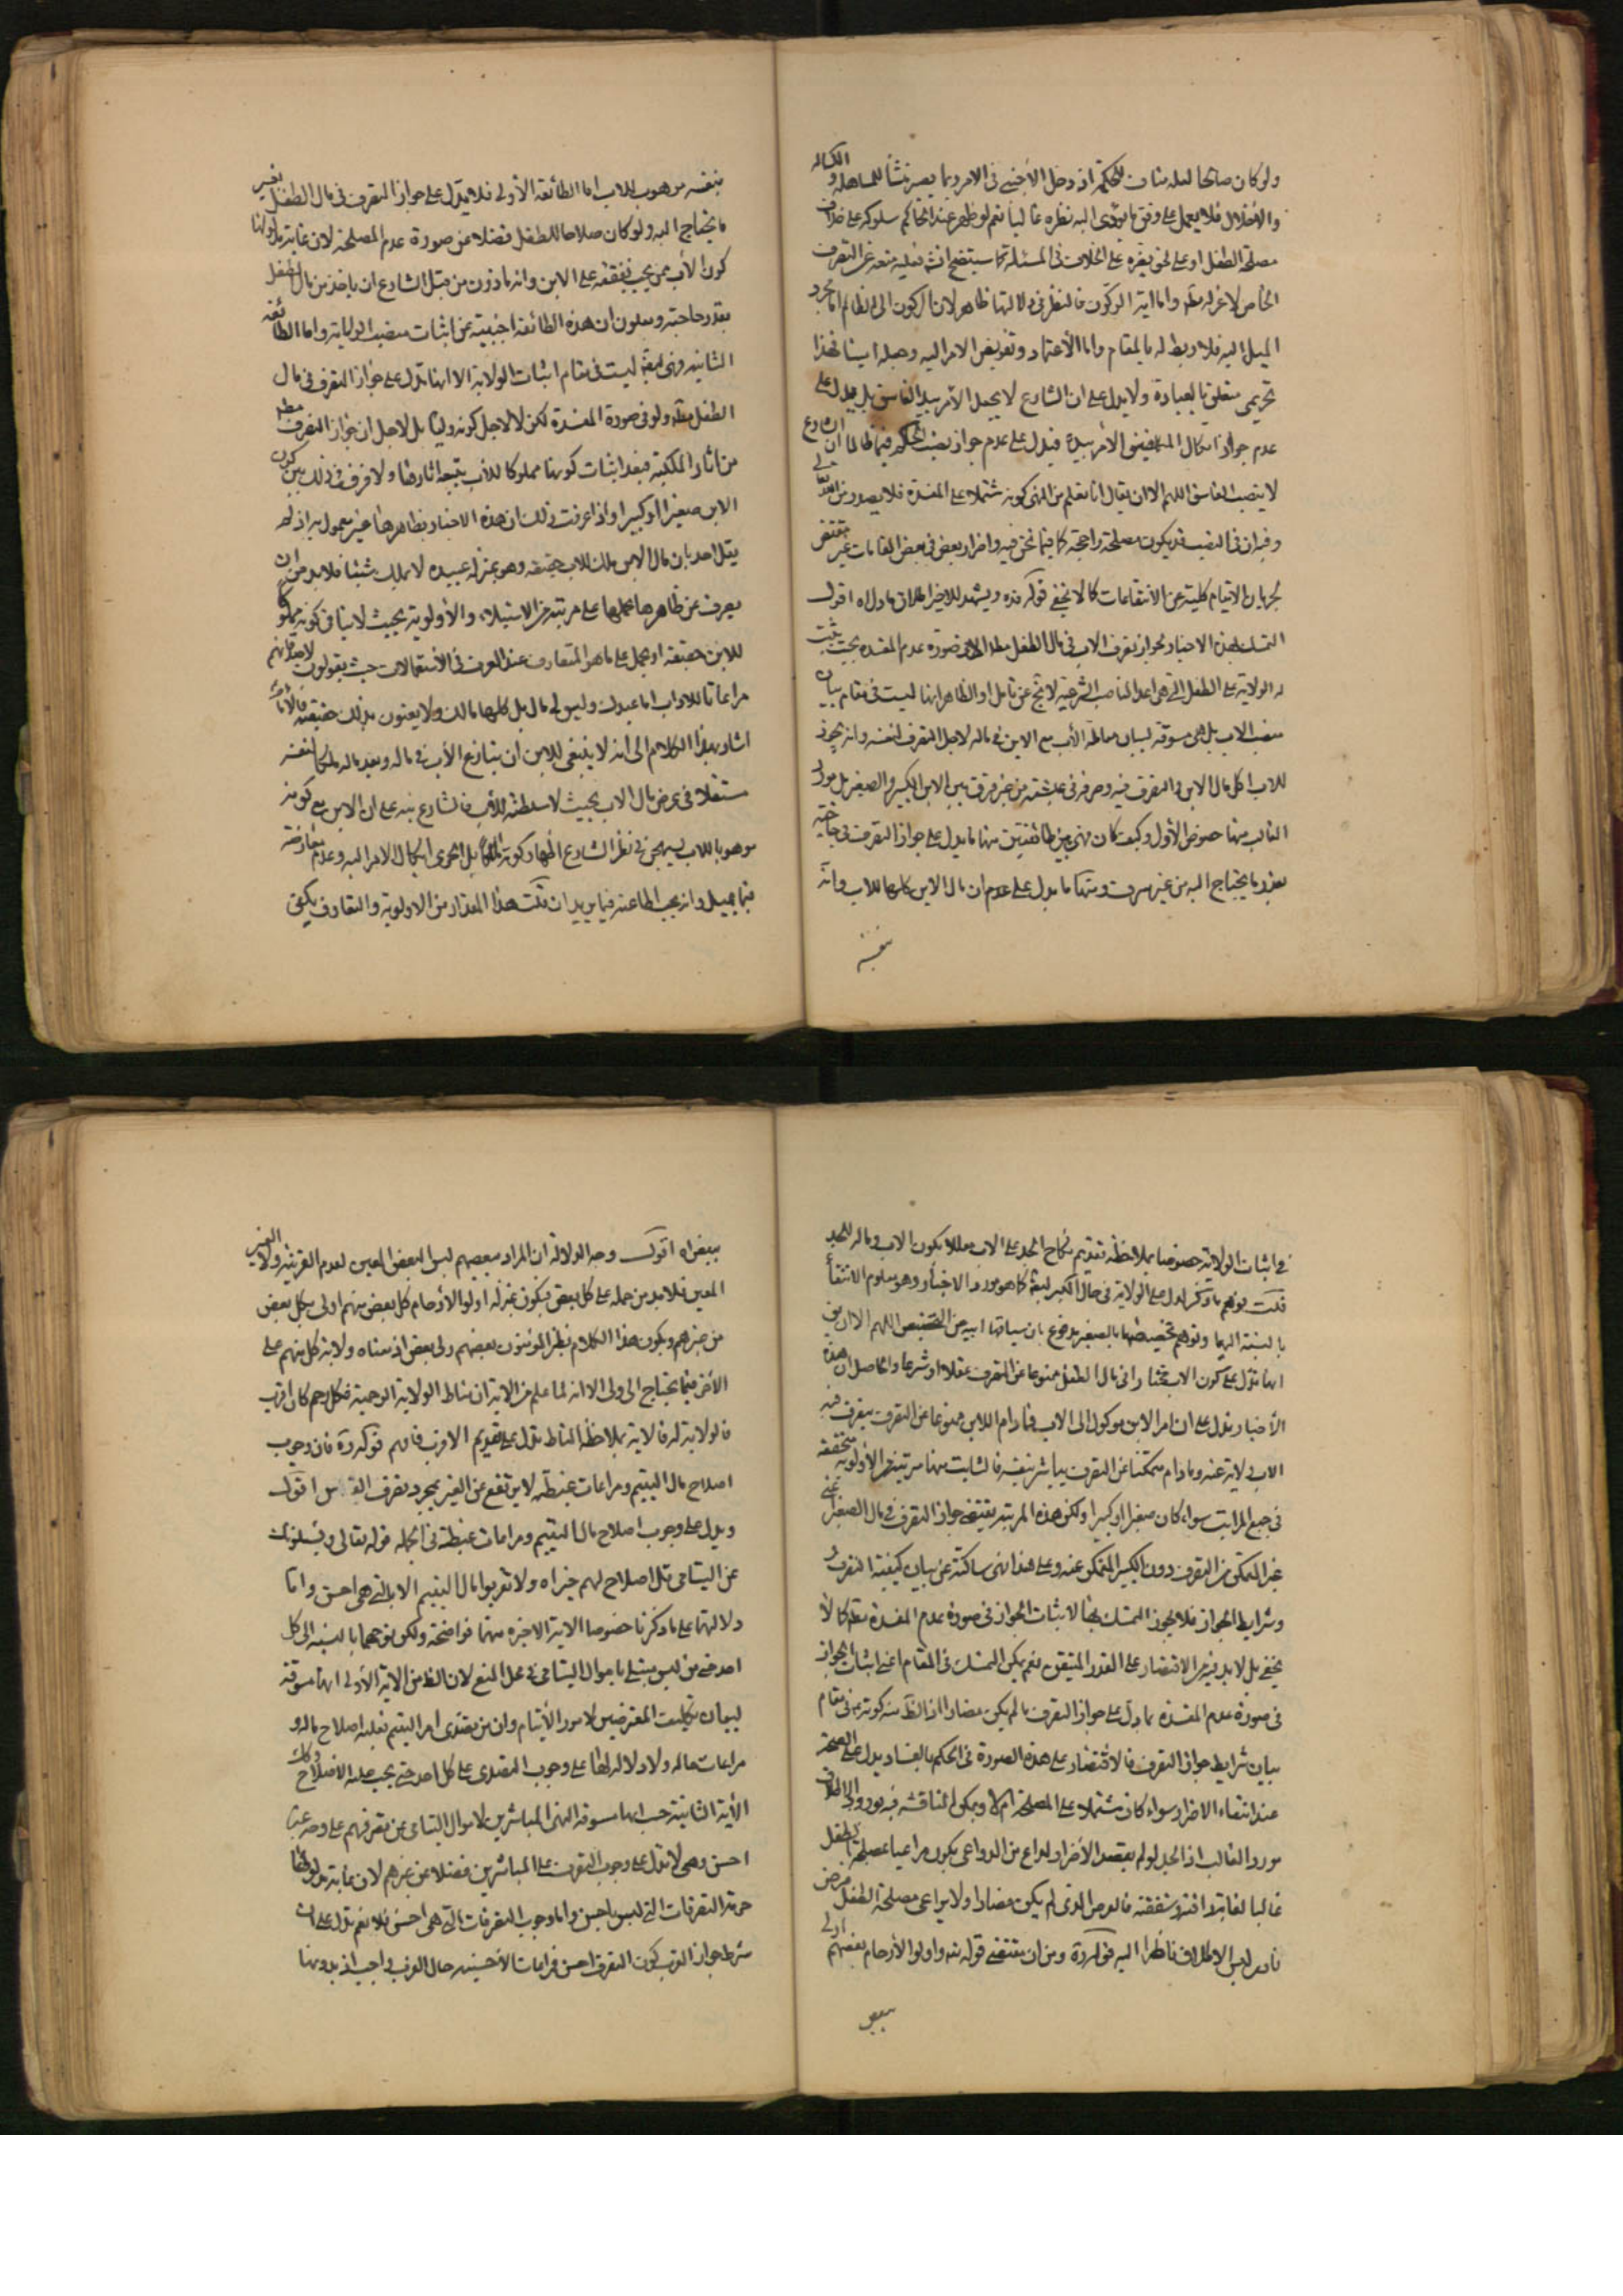 ولو كان صالحا لعله منات للحكمة اذ دخل الأجنبي في الامر ربما يصير منشأ للمساهلة والكسالة
والاخلال فلا يعمل على وفق ما يؤدى اليه نظره غالبا نعم لو ظهر عند الحاكم سلوكه على خلاف
مصلحة الطفل او على نحو يضره على الخلاف في المسئلة كما سيتضح انش فعليه منعه عن التصرف
الخاص لا عزله مطه واما اية الركون فالنظر في دلالتها ظاهر لان الركون الى الظالم اما مجرد
الميل اليه فلا ربط له بالمقام واما الأعتماد وتفويض الامر اليه وجعله امينا فهذا
تحريمى متعلق بالعبادة ولا يدل على ان الشارع لا يجعل الأمر بيد الفاسق بل يدل على
عدم جواز ايكال المكلفين الأمر بيده فيدل على عدم جواز نصب الحاكم فيما ظالما ان الشارع
لا ينصب الفاسق اللهم الا ان يقال انا نعلم من النهى كونه مشتملا على المفسدة فلا يصدر من الله تعالى
وفيه ان في النصب قد يكون مصلحة راجحة كما فيما نحن فيه واضرار بعض في بعض المقامات غير مقتض
لحرمان الايتام كلية عن الانتفاعات كما لا يخفى قوله قده ويشهد للاخير اطلاق ما دل اه اقول
التمسك بهذه الاخبار لجواز تصرف الاب في مال الطفل مطه الا في صورة عدم المفسدة بحيث يثبت
له الولاية على الطفل التي هى احد المناصب الشرعية لا يخ عن تامل اذ الظاهر انها ليست في مقام بيان
منصب الاب بل هى مسوقة لبيان معاملة الأب مع الابن في ماله لاجل التصرف لنفسه وانه يجوز
للاب اكل مال الابن والتصرف فيه وصرفه في معيشته من غير فرق بين الابن الكبير والصغير بل مورد
الغالب منها خصوص الأول وكيف كان فهى بين طائفتين منها ما يدل على جواز التصرف في حاجته
بقدر ما يحتاج اليه من غير سرف ومنها ما يدل على عدم ان مال الابن كلها للاب وانه
بنفسه
بنفسه موهوب للاب اما الطائفة الأولى فلا يدل على جواز التصرف في مال الطفل بغير
ما يحتاج اليه ولو كان صلاحا للطفل فضلا عن صورة عدم المصلحة لان غاية مدلولها
كون الأب ممن يجب نفقته على الابن وانه ماذون من قبل الشارع ان ياخذ من مال الطفل
بقدر حاجته ومعلوم ان هذه الطائفة اجنبية عن اثبات منصب الولاية واما الطائفة
الثانية فهى ايضا ليست في مقام اثبات الولاية الا انها تدل على جواز التصرف في مال
الطفل مطه ولو في صورة المفسدة لكن لا لاجل كونه وليا بل لاجل ان جواز التصرف مطه
من اثار الملكية فبعد اثبات كونها مملوكا للأب يتبعه اثارها ولا فرق في ذلك بين كون
الابن صغيرا او كبيرا واذا عرفت ذلك ان هذه الاخبار بظاهرها غير معمول به اذ لم
يقل احد بان مال الابن ملك للاب حقيقة وهو بمنزلة عبيده لا يملك شيئا فلا بد من ان
يصرف عن ظاهرها بحملها على مرتبة من الاستيلاء والأولوية بحيث لا ينافى كونه مملوكا
للابن حقيقة او يحمل على ما هو المتعارف عند العرف في الأستعمالات حيث يقولون لاصدقائهم
مراعاتا للاداب انا عبدك وليس لى مال بل كلها مالك ولا يعنون بذلك حقيقة فالأمام
اشار بهذا الكلام الى انه لا ينبغى للابن ان ينازع الأب في ماله ويعد ماله ملكا لنفسه
مستقلا في عرض مال الاب بحيث لا سلطنة للأب فالشارع نبه على ان الابن مع كونه
موهوبا للاب يستهجن في نظر الشارع اظهار كونه مالكا بل الحرى ايكال الامر اليه وعدم معارضته
فيما يميل وانه يجب اطاعته فيما يريد ان قلت هذا المقدار من الاولوية والتعارف يكفى
في اثبات الولاية خصوصا بملاحظة تقديم نكاح الجد على الاب معللا بكون الاب وماله للجد
قلت يوهم ما ذكر لدل على الولاية في حال الكبر ايضا كما هو مورد الاخبار وهو معلوم الانتفاء
بالنسبة اليها وتوهم تخصيصها بالصغير مدفوع بان سياقها ابية من التخصيص اللهم الا ان يق
انها تدل على كون الاب مختارا في مال الطفل ممنوعا عن التصرف عقلا او شرعا والحاصل ان هذه
الأخبار تدل على ان امر الابن موكول الى الاب فما دام الابن ممنوعا عن التصرف يتصرف فيه
الاب ولاية عنه وما دام متمكنا عن التصرف يباشر بنفسه فالثابت منها مرتبة من الأولوية متحققة
في جميع المراتب سواء كان صغيرا او كبيرا ولكن هذه المرتبة يقتضى جواز التصرف في مال الصغير عنى
غير المتمكن من التصرف دون الكبير المتمكن عنه وعلى هذا فهى ساكتة عن بيان كيفية التصرف
وشرايط الجواز فلا يجوز التمسك بها لاثبات الجواز في صورة عدم المفسدة مطه كما لا
يخفى بل لا بد فيه من الاقتصار على القدر المتيقن نعم يمكن التمسك في المقام اعنى اثبات الجواز
في صورة عدم المفسدة بما دل على جواز التصرف ما لم يكن مضارا اذ الظ منه كونه في مقام
بيان شرايط جواز التصرف فالاقتصار على هذه الصورة في الحكم بالفساد يدل على الصحة
عند انتفاء الاضرار سواء كان مشتملا على المصلحة ام لا ويمكن المناقشة فيه بورود الاطلاق
مورد الغالب اذ الجد لو لم يقصد الأضرار لداع من الدواعى يكون مراعيا مصلحة الطفل
غالبا لغاية رافته وشفقته فالفرض الذى لم يكن مضارا ولا يراعى مصلحة الطفل فرض
نادر ليس الاطلاق ناظرا اليه قوله رة ومن ان مقتضى قوله تعه واولوا الأرحام بعضهم اولى
ببعض
ببعض اه اقول وجه الدلالة ان المراد ببعضهم ليس البعض المعين لعدم القرينة ولا الغير
المعين فلا بد من حمله على كل بعض فيكون بمنزلة اولوا الأرحام كل بعض منهم اولى بكل بعض
من غيرهم ويكون هذا الكلام نظير المؤمنون بعضهم ولى بعض اذ معناه ولاية كل منهم على
الأخر فيما يحتاج الى ولى الا انه لما علم من الاية ان مناط الولاية الرحمية فكل رحم كان اقرب
فالولاية له فالاية بملاحظة المناط تدل على تقديم الاقرب فافهم قوله رة فان وجوب
اصلاح مال اليتيم ومراعات غبطته لا يرتفع عن الغير بمجرد تصرف اه اقول
ويدل على وجوب اصلاح مال اليتيم ومراعات غبطته في الجملة قوله تعالى ويسئلونك
عن اليتامى قل اصلاح لهم خير اه ولا تقربوا مال اليتيم الا بالتي هى احسن واما
دلالتها على ما ذكرنا خصوصا الاية الاخيرة منهما فواضحة ولكن توجهها بالنسبة الى كل
احد حتى من ليس مبتلى باموال اليتامى في محل المنع لان الظ من الاية الأولى انها مسوقة
لبيان تكليف المعترضين لامور الأيتام وان من يتصدى امر اليتيم فعليه اصلاح ماله و
مراعات حاله ولا دلالة لها على وجوب التصدى على كل احد حتى يجب عليه الاصلاح وكك
الأية الثانية حيث انها مسوقة لنهى المباشرين لاموال اليتامى عن تصرفهم على وجه غير
احسن وهى لا تدل على وجوب التصرف على المباشرين فضلا عن غيرهم لان غاية مدلولها
حرمة التصرفات التي ليس باحسن واما وجوب التصرفات بالتي هى احسن فلا نعم تدل على ان
شرط جواز القرب كون التصرف احسن فمراعات الأحسنية حال القرب واجب اذ بدونها